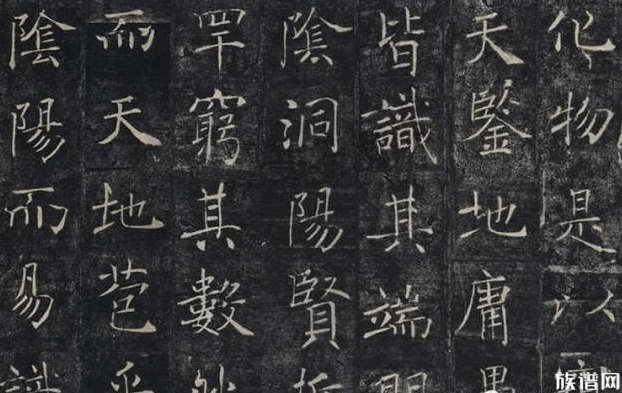 化物是以
天鑒地庸
皆識其端
陰洞陽賢
罕窮其數
而天地苞乎
陰陽而易識
族谱网